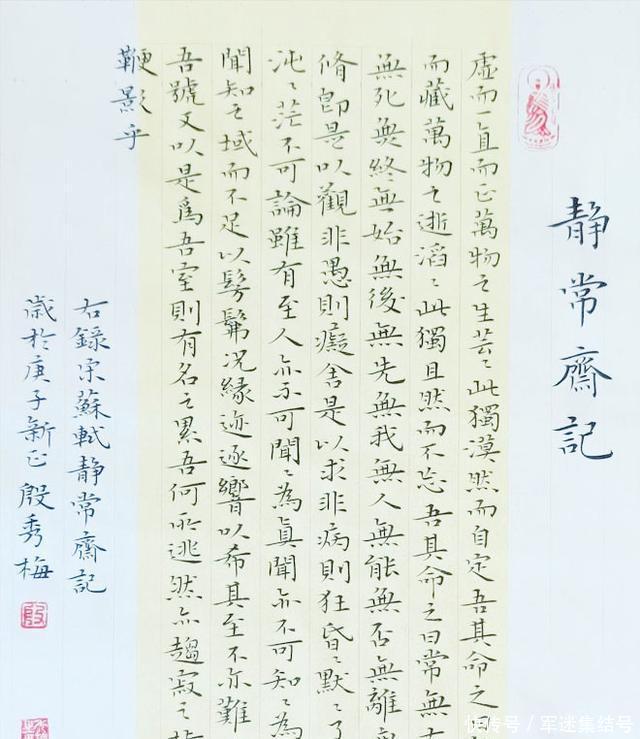 静常齋記
虛而一直而正萬物之生芸〻此獨漠然而自定吾其命之
而藏萬物之逝滔〻此獨且然而不忘吾其命之曰常無
無死無終無始無後無先無我無人無能無否無離無
脩即是以觀非愚則癡舍是以求非病則狂昏〻默〻了
沌〻茫不可論雖有至人亦不可聞〻為真聞亦不可知〻為
聞知之域而不足以髣髴況緣迹逐響以希其至不亦難
吾號又以是爲吾室則有名之累吾何所逃然亦趨寂之
鞭影乎
右錄宋蘇軾静常齋記
歲於庚子新正殷秀梅
殷
快传号 / 军迷集结号